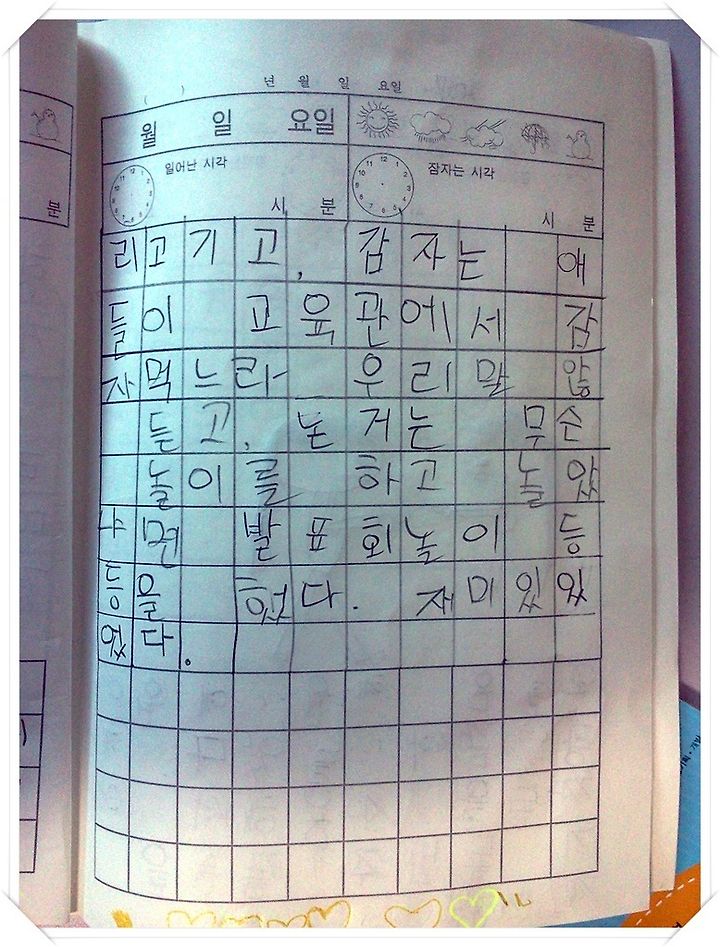 ( ) 년 월 일 요일
월 일 요일
일어난 시각 잠자는 시각
분 시 분 시 분
리고기고, 감자는 애
들이 교육관에서 감
자먹느라 우리말 않
듣고, 논거는 무슨
놀이를 하고 놀았
냐면 발표회놀이 등
등을 헜다. 재미있있
었다.